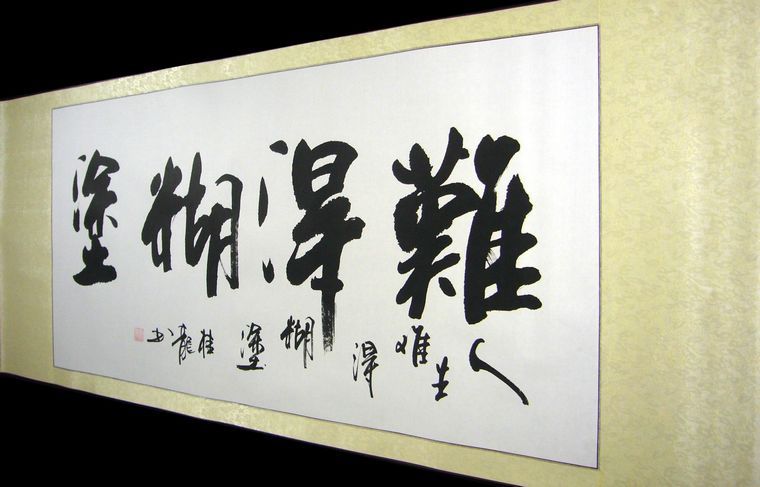 難得糊塗
人生难得糊塗桂龍书